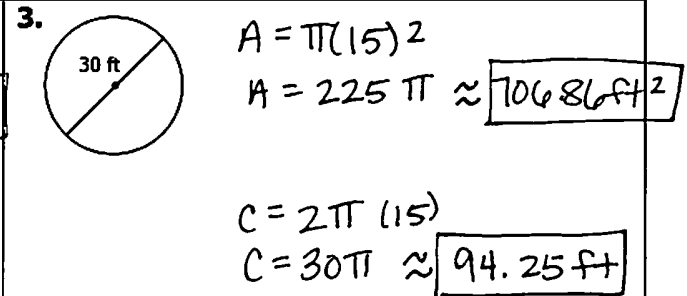 3.
30 ft
A = π(15)2
A = 225 π ≈ 706.86 ft 2
C = 2π (15)
C = 30π ≈ 94.25 ft